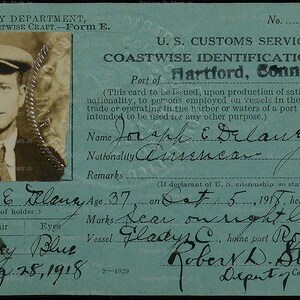 Y DEPARTMENT,
ASTWISE CRAFT.—FORM E.
No.
U. S. CUSTOMS SERVIC
COASTWISE IDENTIFICATION
Port of Hartford, Conn
(This card to be issued, upon production of sati
nationality, to persons employed on vessels in the
trade or operating in the harbor or waters of a port
intended to be used for any other purpose.)
Name Joseph E Delaney
Nationality American
Remarks
(If declarant of U. S. citizenship, so stat
E Delaney Age 37, on Oct 5, 1918, hei
of holder.)
Marks Scar on right
air Eyes
Vessel Gladys C, home port
ey Blue
Robert D.
28, 1918
2—4829
Deputy Co